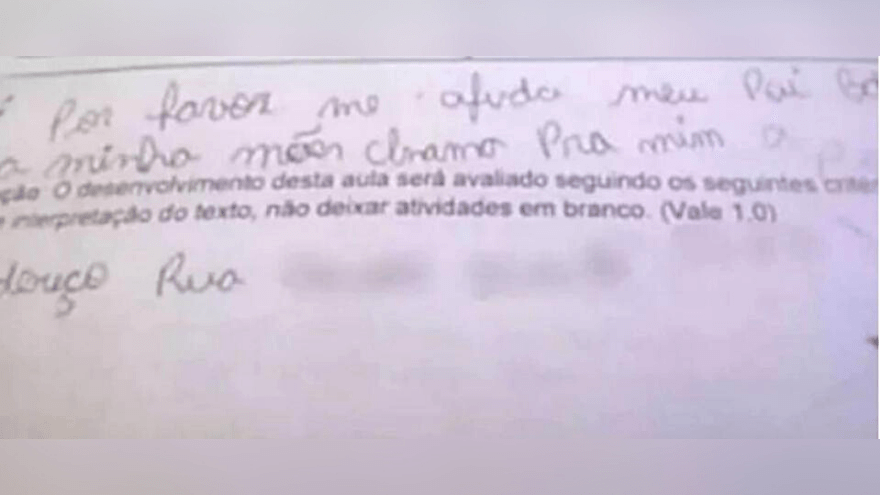 Por favor me ajuda meu Pai
a minha mãen chramo Pra mim a
ção O desenvolvimento desta aula será avaliado seguindo os seguintes criter
e interpretação do texto, não deixar atividades em branco. (Vale 1.0)
Rua